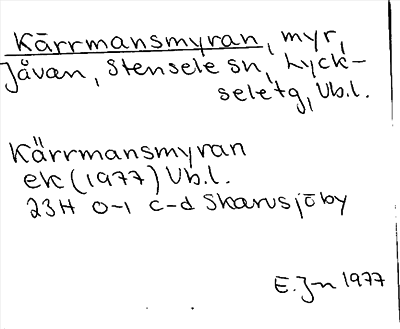 Kärrmansmyran, myr,
Jåvan, Stensele sn, Lyck-
sele tg, Vb.l.
Kärrmansmyran
ek (1977) Vb.l.
23H 0-1 c-d Skarvsjöby
E. J-n 1977